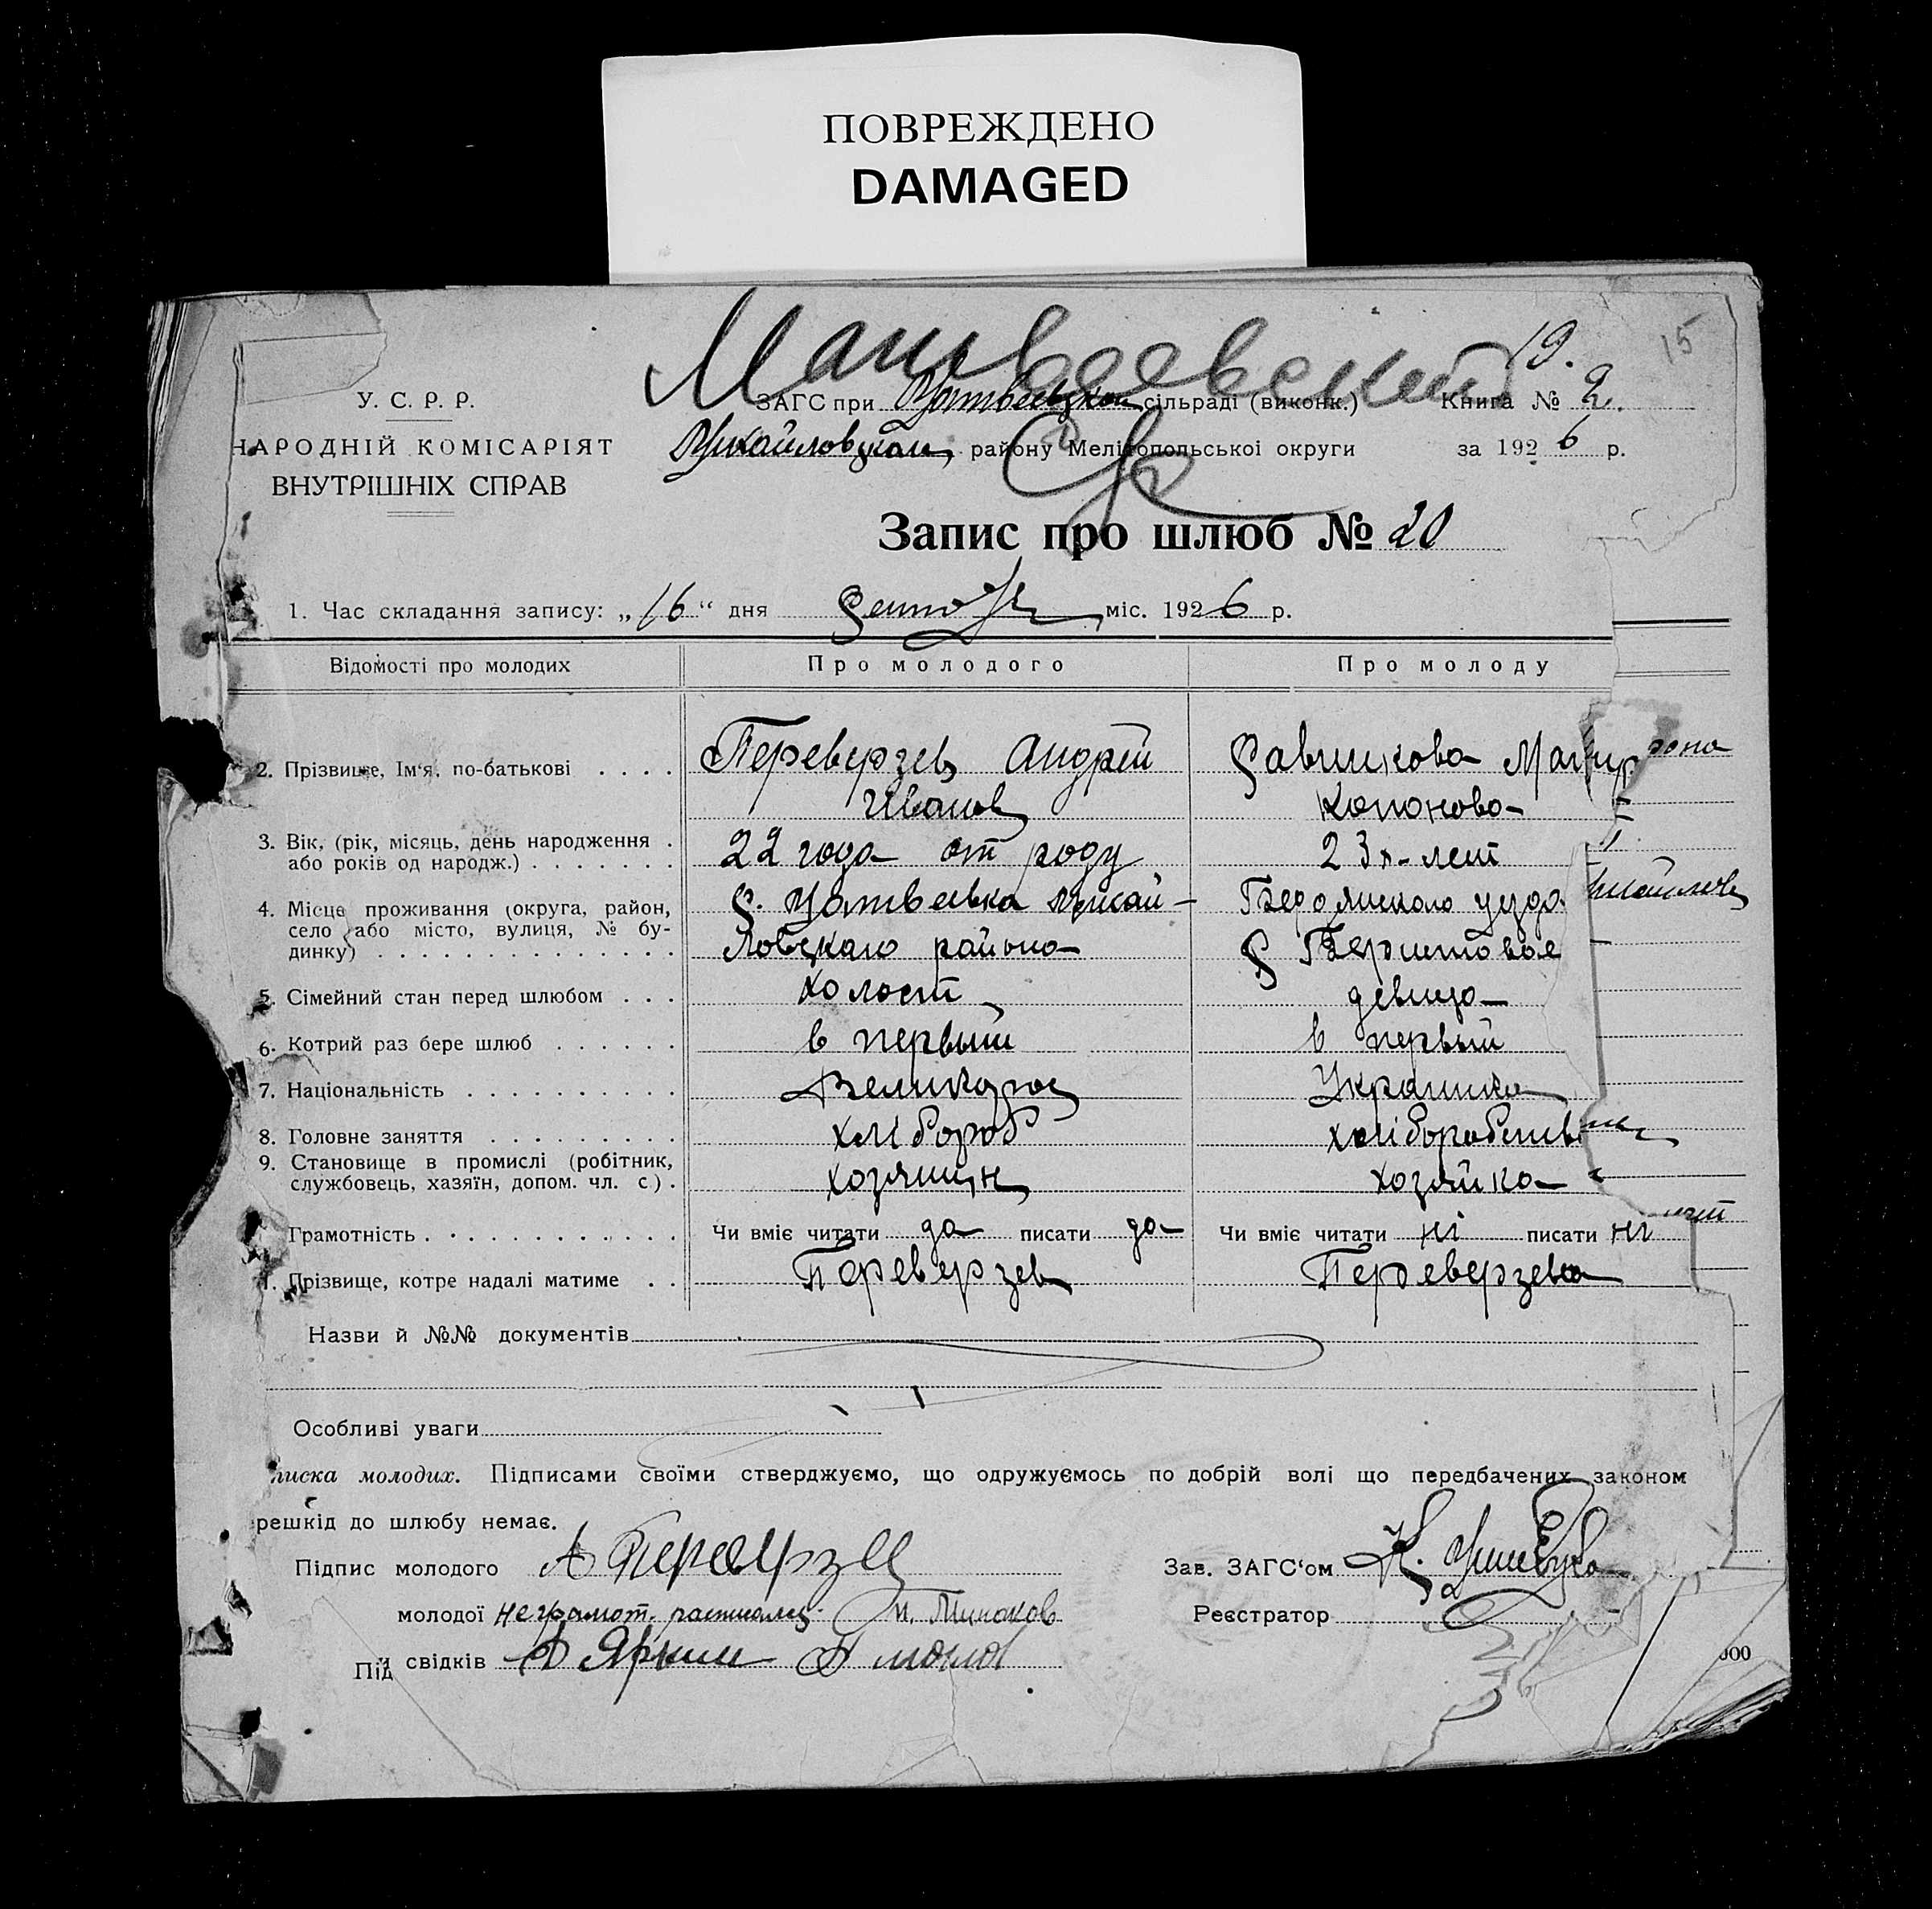 ПОВРЕЖДЕНО
DAMAGED
19.
15
Матвеевский
У. С. Р. Р.
ЗАГС при Матвеевской сільраді (виконк.) Книга № 2.
НАРОДНІЙ КОМІСАРІЯТ
Михайловском району Мелітопольської округи за 1926 р.
ВНУТРІШНІХ СПРАВ
Запис про шлюб № 20
1. Час складання запису: „16“ дня міс. 1926 р.
Відомості про молодих Про молодого Про молоду
2. Прізвище, Ім'я, по-батькові . . . . Переверзев Андрей
Иванов
3. Вік, (рік, місяць, день народження .
або років од народж.) . . . . . . . 22 года от роду 23х-лет
4. Місце проживання (округа, район, с. Матвеевка Михай- Бердянского уезда
село або місто, вулиця, № бу-
динку) . . . . . . . . . . . . . . ловского района с
5. Сімейний стан перед шлюбом . . . холост девица
6. Котрий раз бере шлюб . . . . . . в первый в первый
7. Національність . . . . . . . . . . Великорос Украинка
8. Головне заняття . . . . . . . . . хлібороб
9. Становище в промислі (робітник,
службовець, хазяїн, допом. чл. с.) . хозяин хозяйка
Грамотність . . . . . . . . . . . . Чи вміє читати да писати да Чи вміє читати ні писати ні
Прізвище, котре надалі матиме . . Переверзев Переверзева
Назви й №№ документів
Особливі уваги
писка молодих. Підписами своїми стверджуємо, що одружуємось по добрій волі що передбачених законом
решкід до шлюбу немає.
Підпис молодого А Зав. ЗАГС'ом К.
молодої неграмот. Минаков Реєстратор
Під свідків
000